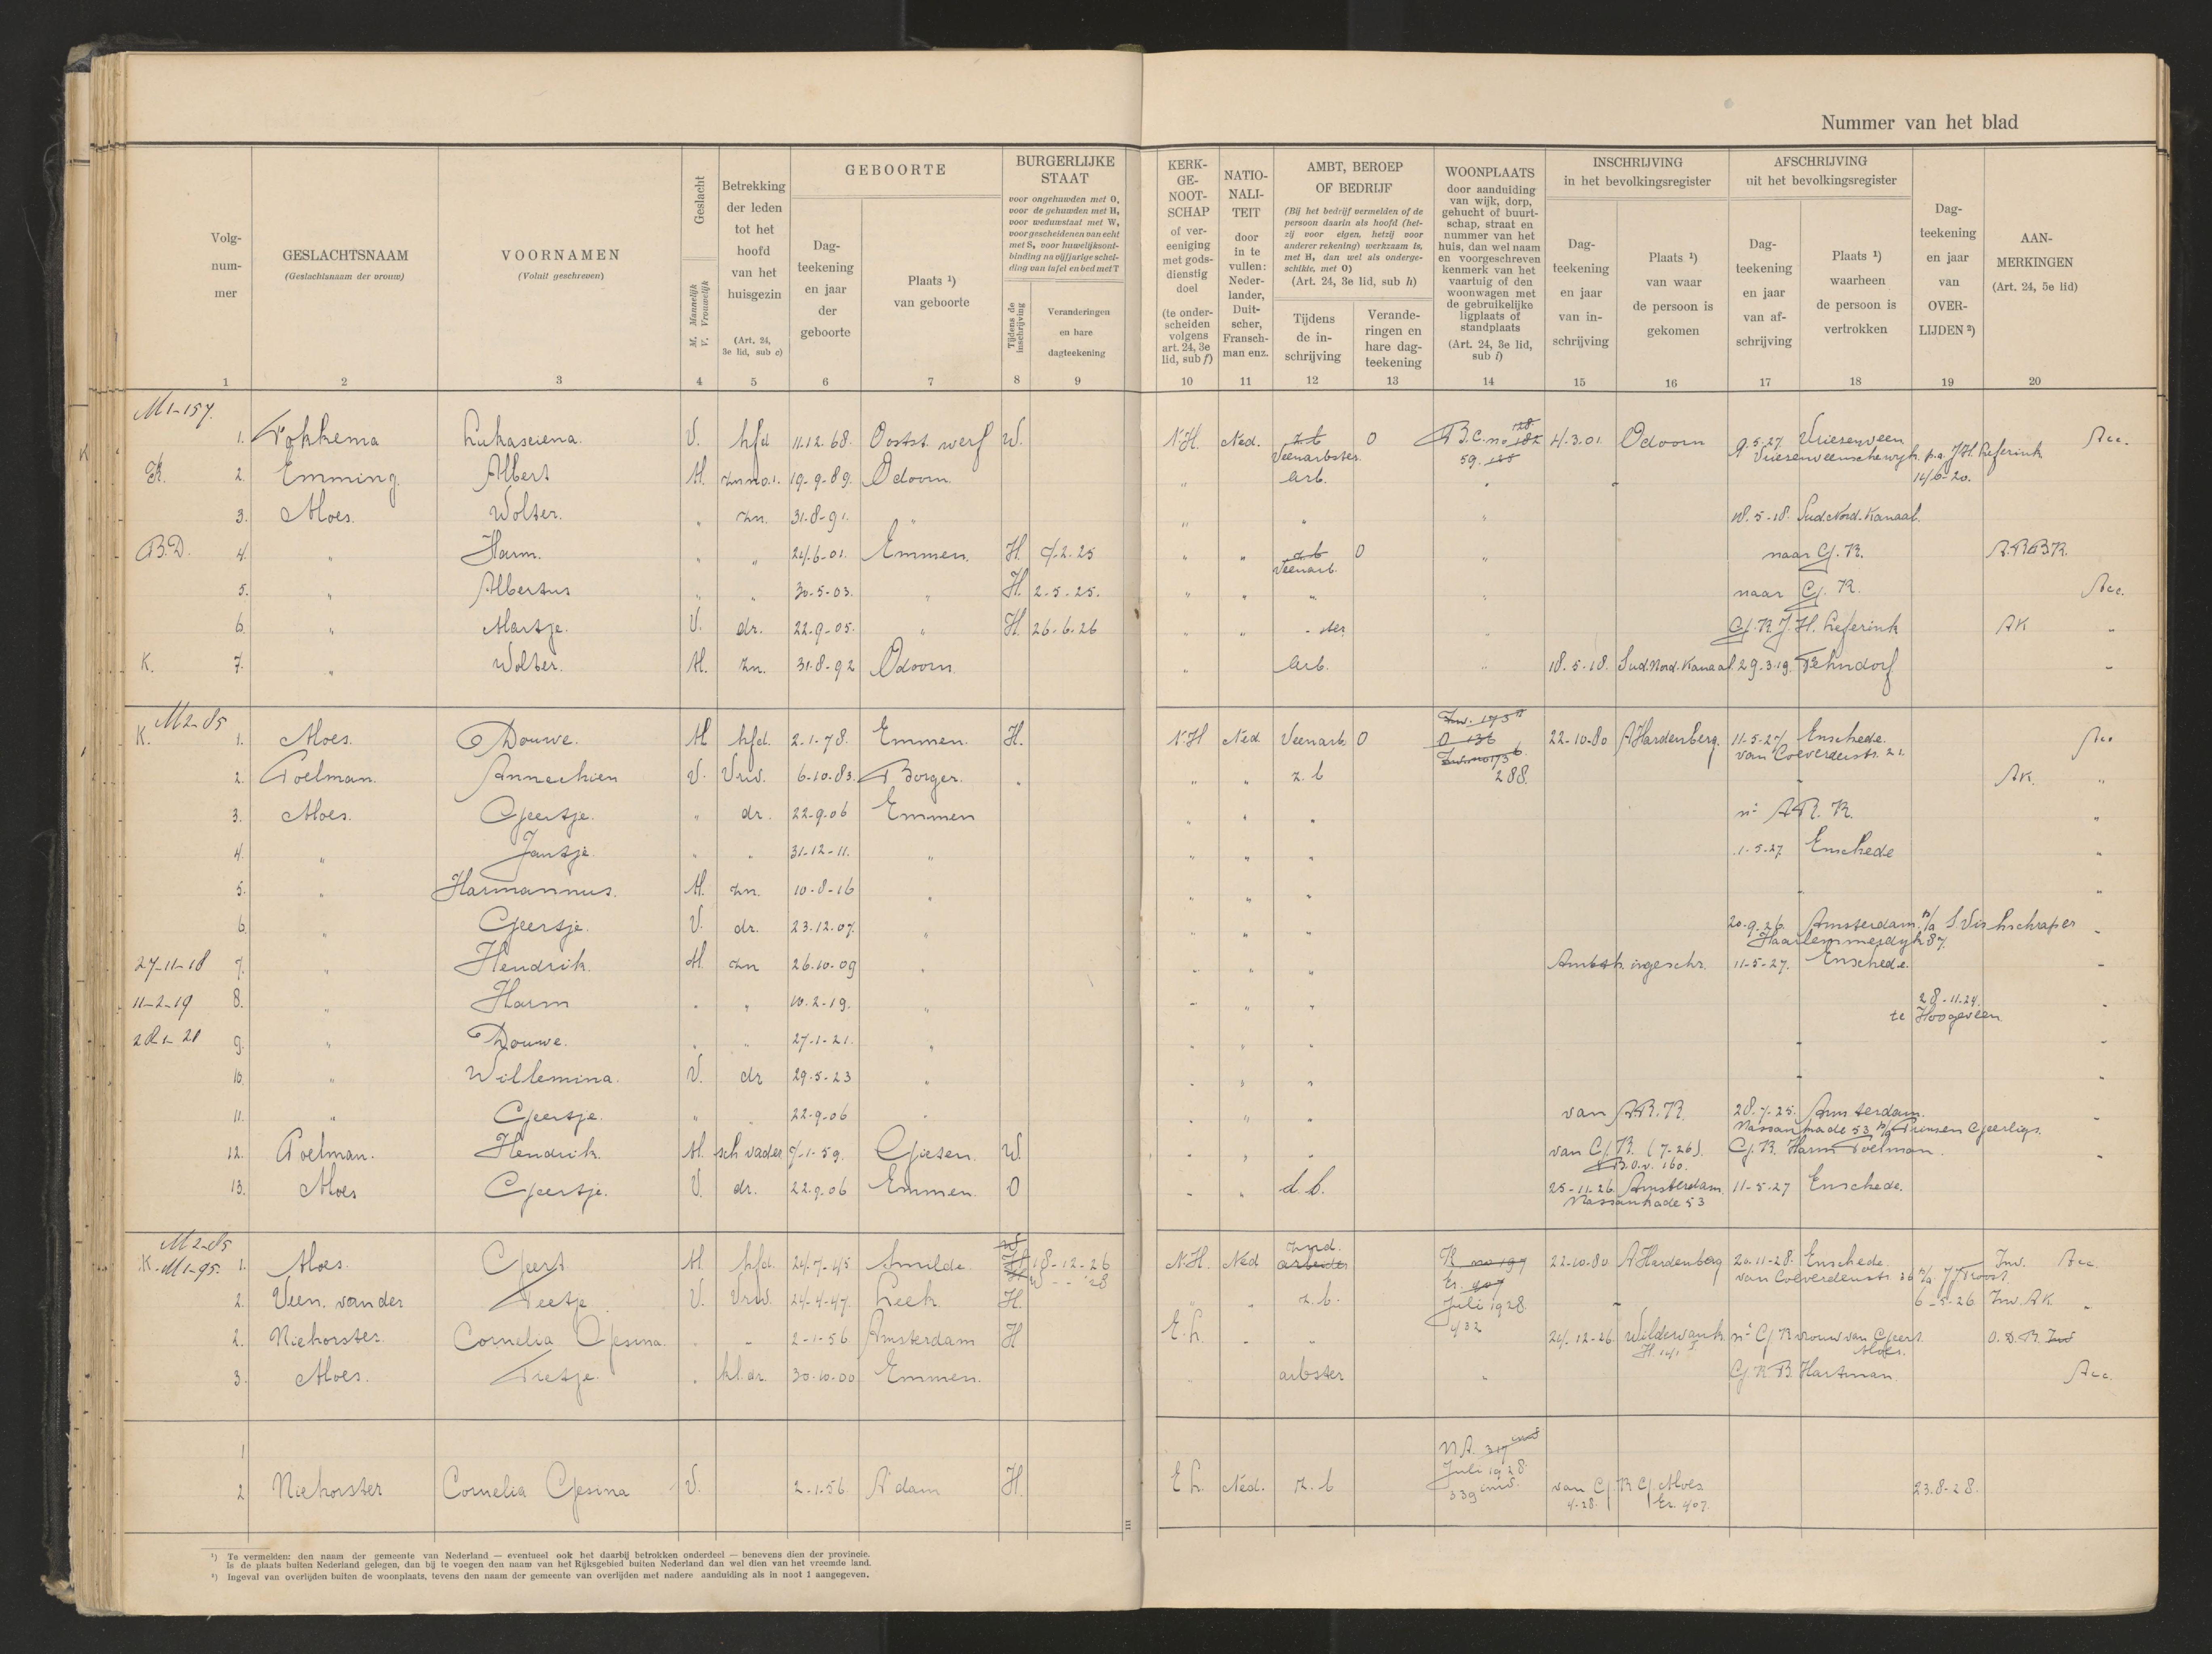 Nummer van het blad
Volg-
num-
mer
GESLACHTSNAAM
(Geslachtsnaam der vrouw)
VOORNAMEN
(Voluit geschreven)
Geslacht
M. Mannelijk
V. Vrouwelijk
Betrekking
der leden
tot het
hoofd
van het
huisgezin
(Art. 24,
3e lid, sub c)
GEBOORTE
Dag-
teekening
en jaar
der
geboorte
Plaats ¹)
van geboorte
BURGERLIJKE
STAAT
voor ongehuwden met O,
voor de gehuwden met H,
voor weduwstaat met W,
voor gescheidenen van echt
met S, voor huwelijksont-
binding na vijfjarige schei-
ding van tafel en bed met T
Tijdens de
inschrijving
Veranderingen
en hare
dagteekening
KERK-
GE-
NOOT-
SCHAP
of ver-
eeniging
met gods-
dienstig
doel
(te onder-
scheiden
volgens
art. 24, 3e
lid, sub f)
NATIO-
NALI-
TEIT
door
in te
vullen:
Neder-
lander,
Duit-
scher,
Fransch-
man enz.
AMBT, BEROEP
OF BEDRIJF
(Bij het bedrijf vermelden of de
persoon daarin als hoofd (het-
zij voor eigen, hetzij voor
anderer rekening) werkzaam is,
met H, dan wel als onderge-
schikte, met O)
(Art. 24, 3e lid, sub h)
Tijdens
de in-
schrijving
Verande-
ringen en
hare dag-
teekening
WOONPLAATS
door aanduiding
van wijk, dorp,
gehucht of buurt-
schap, straat en
nummer van het
huis, dan wel naam
en voorgeschreven
kenmerk van het
vaartuig of den
woonwagen met
de gebruikelijke
ligplaats of
standplaats
(Art. 24, 3e lid,
sub i)
INSCHRIJVING
in het bevolkingsregister
Dag-
teekening
en jaar
van in-
schrijving
Plaats ¹)
van waar
de persoon is
gekomen
AFSCHRIJVING
uit het bevolkingsregister
Dag-
teekening
en jaar
van af-
schrijving
Plaats ¹)
waarheen
de persoon is
vertrokken
Dag-
teekening
en jaar
van
OVER-
LIJDEN ²)
AAN-
MERKINGEN
(Art. 24, 5e lid)
1 2 3 4 5 6 7 8 9 10 11 12 13 14 15 16 17 18 19 20
M1-157.
1. Fokkema Lukasiena. V. hfd 11.12.68. Oostst. werf W. N.H. Ned. z.b 0 B.C. no 182 128 4.3.01. Odoorn 9.5-27 Vriesenveen Acc.
Veenarbster. 59. Vriesenveenschewijk. p.a. J.H. Leferink
2. Emming Albert M. zn no.1. 19-9-89. Odoorn. " Arb. " 14/6-20.
3. Moes. Wolter. " zn. 31-8-91. " " " " 18.5-18. Sud. Nord. Kanaal.
B.D. 4. " Harm. " " 24-6-01. Emmen. H. 7-2.25 " " z.b 0 " naar G.K. A.R.B.K.
Veenarb.
5. " Albertus " " 30-5-03. " H. 2-5.25. " " " " naar G.K. Acc.
6. " Martje. V. dr. 22.9-05. " H. 26.6.26 " " - ster " G.K. J.H. Leferink AK "
K. 7. " Wolter. M. zn. 31-8-92 Odoorn. " Arb. " 18.5-18. Sud. Nord. Kanaal 29.3.19. Fehndorf "
M2-85
K. 1. Moes. Douwe. M hfd. 2-1-78. Emmen. H. N.H Ned Veenarb 0 22-10-80 A Hardenberg. 11-5-27 Enschede. Acc
O 136 van Coeverdenstr. 21.
2. Poelman. Annechien V. Vrw. 6-10-83. Borger. " " " z.b 288. AK. "
3. Moes. Geertje. " dr. 22-9.06 Emmen " " " nr A.R.K. "
4. " Jantje. " " 31-12-11. " " " " 1-5-27 Enschede "
5. " Harmannus. M. zn. 10-8-16 " " " " "
6. " Geertje. V. dr. 23.12.07. " " " " 20-9.26. Amsterdam p/a S. Vischschraper
Haarlemmerdyk 87.
27-11-18 7. " Hendrik. M. zn 26.10-09 " " " " Ambtsh. ingeschr. 11-5-27. Enschede.
11-2-19 8. " Harm " " 10.2-19. " " " " 28-11-24.
te Hoogeveen
28-1-21 9. " Douwe. " " 27-1-21. " " " "
10. " Willemina. V. dr 29.5-23 " " " "
11. " Geertje. " " 22-9-06 " " " " van A.R.K. 28.7-25. Amsterdam.
Nassaukade 53 p/a Prinsen Geerligs.
12. Poelman. Hendrik. M. sch vader 7-1-59. Gieten. W. " " " van G.K. (7-26). G.K. Harm Poelman.
B.O.v. 160.
13. Moes Geertje. V. dr. 22.9-06 Emmen. O " " d.b. 25-11-26. Amsterdam. 11-5-27 Enschede.
Nassaukade 53
M2-85
K. M1-95. 1. Moes. Geert. M. hfd. 24-7-45 Smilde. 18-12-26 N.H. Ned znd. arbeider K. no 197 22-10-80. A Hardenberg 20-11-28. Enschede. Inw. Acc.
van Coeverdenstr. 36 p/a J Troost.
2. Veen, van der Teetje V. Vrw. 24-4-47. Leek. H. " " z.b. Juli 1928. 6-5-26 Inw. A.K. "
432
2. Niehorster. Cornelia Gesina. " " 2-1-56 Amsterdam H E.L. " " 24-12-26. Wildervank nr G.K vrouw van Geert O.D.K.
Moes.
3. Moes. Tretje. " kl.dr. 30-10-00 Emmen. " arbster " G.K. B. Hartman. Acc.
1 N.A. 317
Juli 1928.
2 Niehorster Cornelia Gesina V. 2-1.56. A'dam H. E L. Ned. z.b 339 van G K G Moes 23.8-28.
4-28. Er. 407.
III
¹) Te vermelden: den naam der gemeente van Nederland — eventueel ook het daarbij betrokken onderdeel — benevens dien der provincie.
Is de plaats buiten Nederland gelegen, dan bij te voegen den naam van het Rijksgebied buiten Nederland dan wel dien van het vreemde land.
²) Ingeval van overlijden buiten de woonplaats, tevens den naam der gemeente van overlijden met nadere aanduiding als in noot 1 aangegeven.